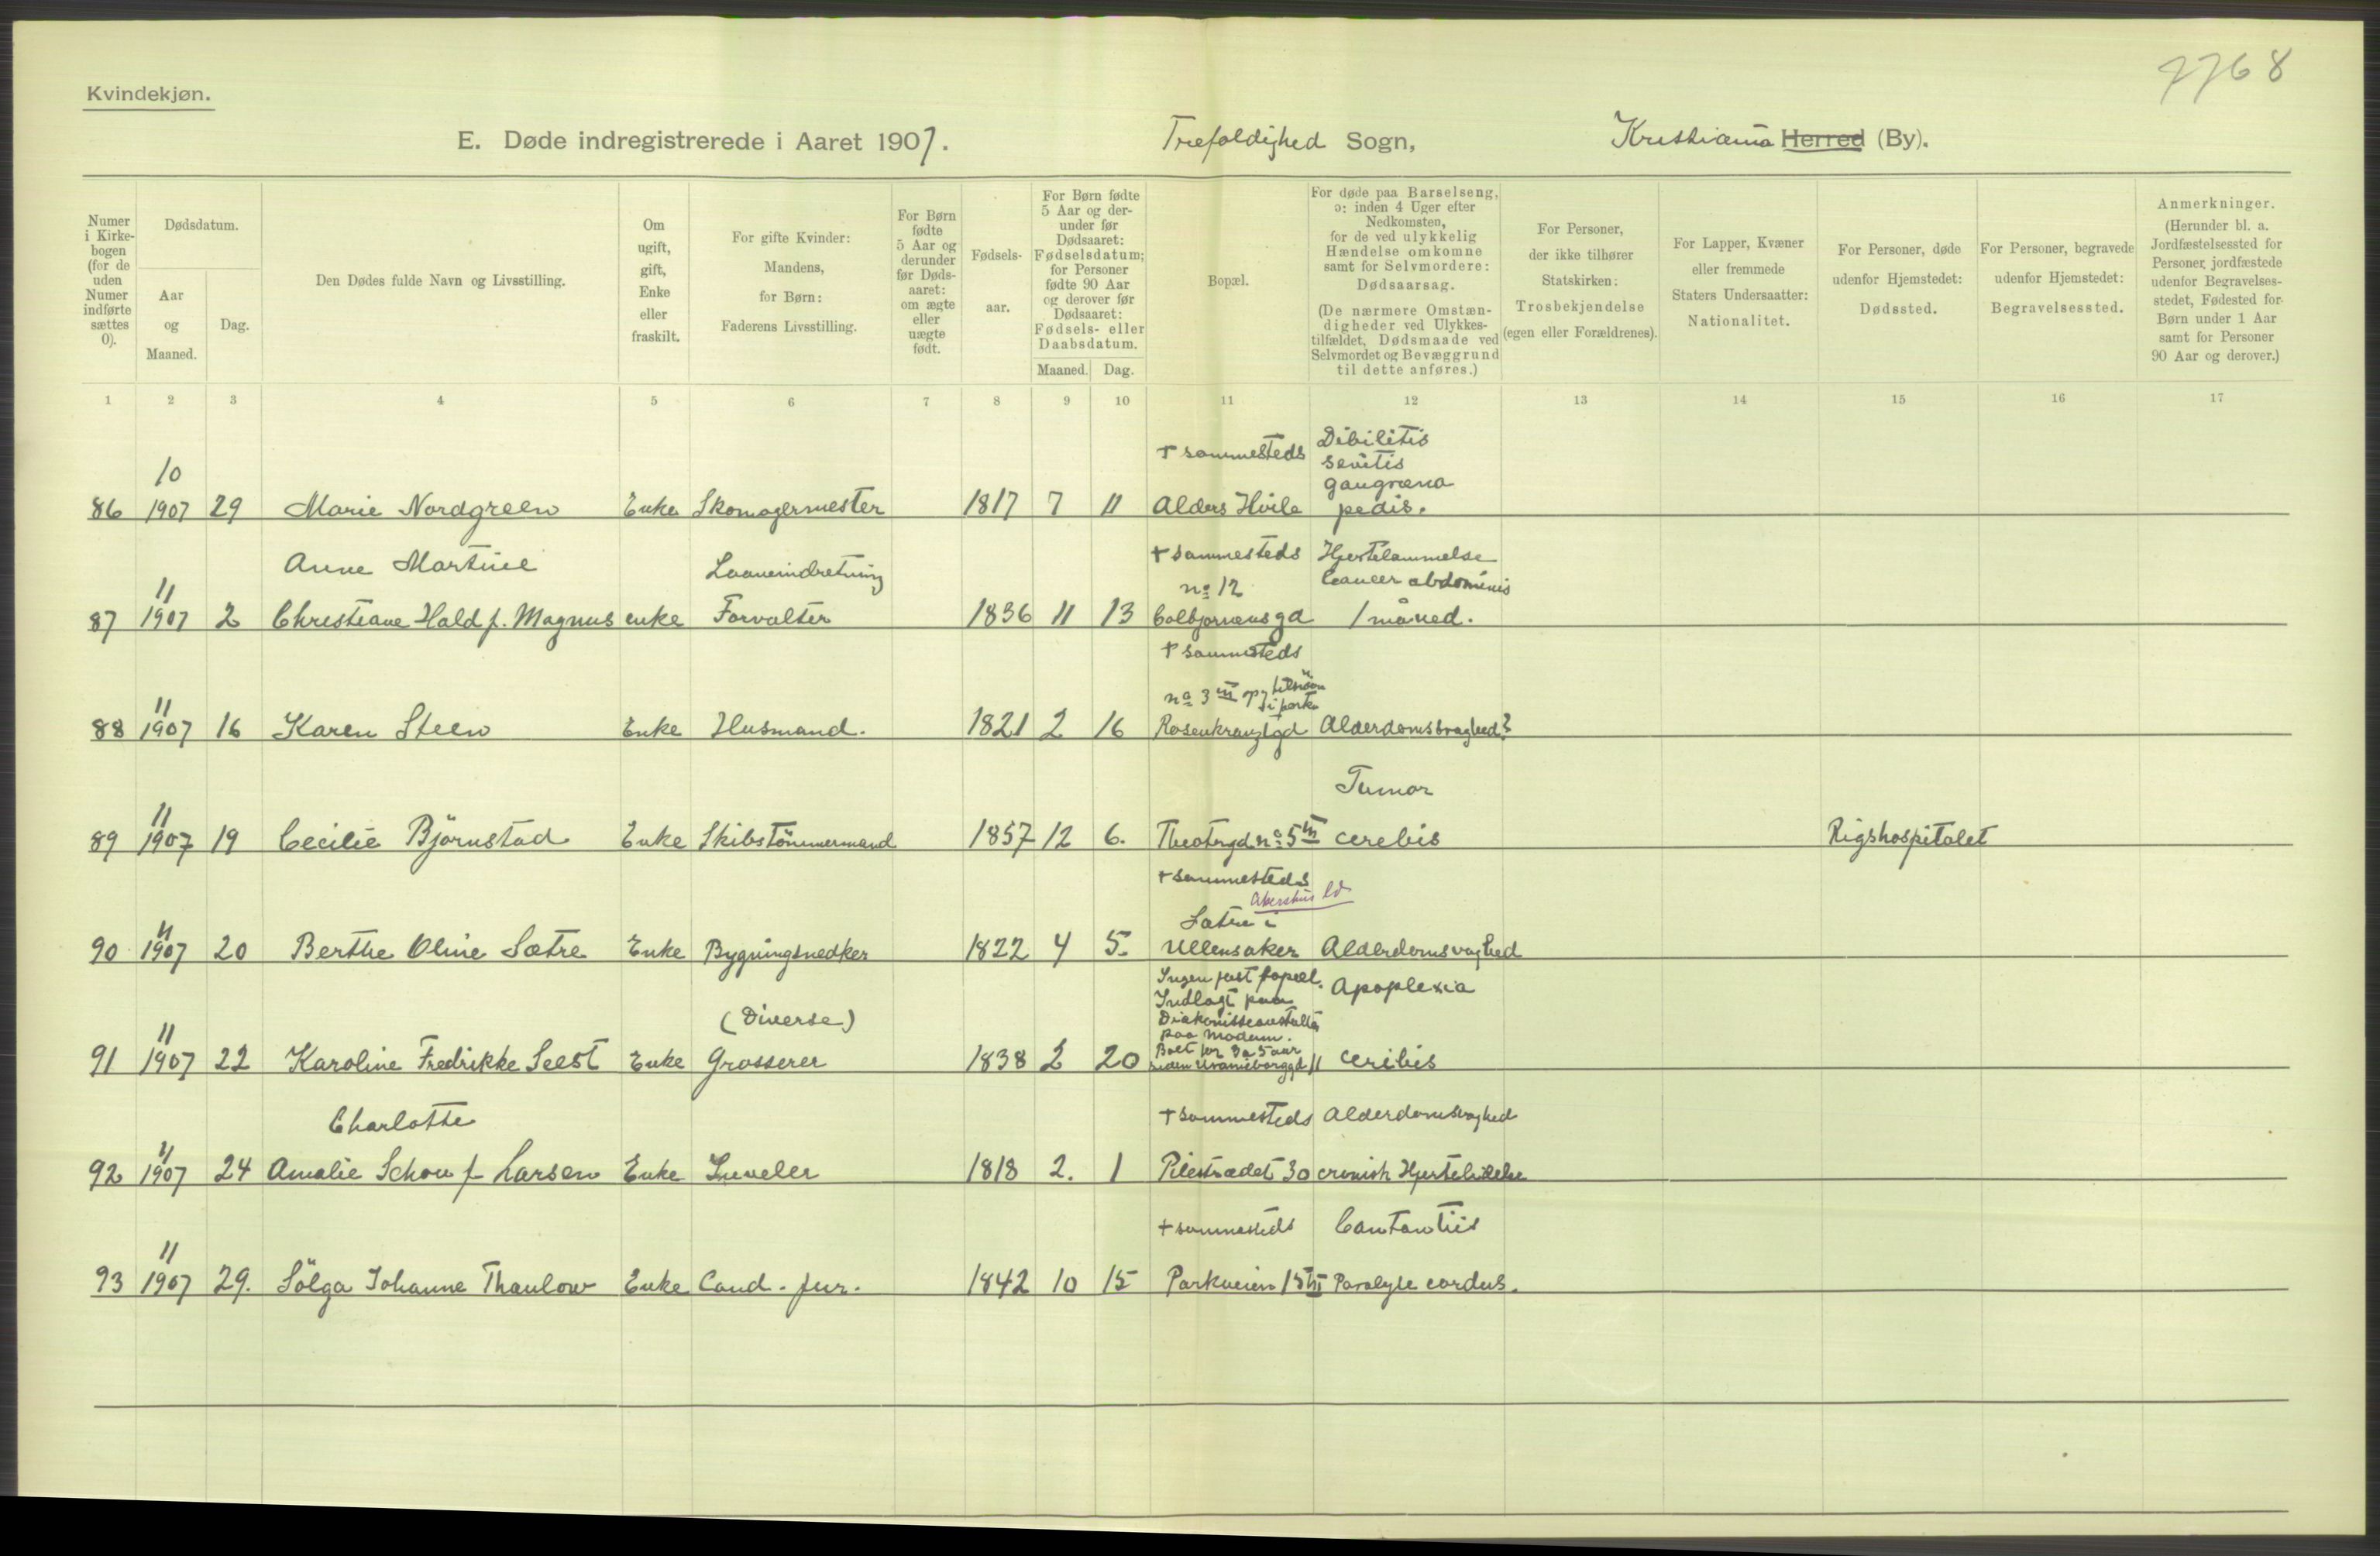 7768
Kvindekjøn.
E. Døde indregistrerede i Aaret 1907. Trefoldighed Sogn, Kristiania Herred (By).
Numer i Kirkebogen (for de uden Numer indførte sættes 0).
Dødsdatum.
Aar og Maaned.
Dag.
Den Dødes fulde Navn og Livsstilling.
Om ugift, gift, Enke eller fraskilt.
For gifte Kvinder: Mandens, for Børn: Faderens Livsstilling.
For Børn fødte 5 Aar og derunder før Dødsaaret: om ægte eller uægte født.
Fødselsaar.
For Børn fødte 5 Aar og derunder før Dødsaaret: Fødselsdatum; for Personer fødte 90 Aar og derover før Dødsaaret: Fødsels- eller Daabsdatum.
Maaned. Dag.
Bopæl.
For døde paa Barselseng, ɔ: inden 4 Uger efter Nedkomsten, for de ved ulykkelig Hændelse omkomne samt for Selvmordere: Dødsaarsag.
(De nærmere Omstændigheder ved Ulykkestilfældet, Dødsmaade ved Selvmordet og Bevæggrund til dette anføres.)
For Personer, der ikke tilhører Statskirken: Trosbekjendelse (egen eller Forældrenes).
For Lapper, Kvæner eller fremmede Staters Undersaatter: Nationalitet.
For Personer, døde udenfor Hjemstedet: Dødssted.
For Personer, begravede udenfor Hjemstedet: Begravelsessted.
Anmerkninger.
(Herunder bl. a. Jordfæstelsessted for Personer, jordfæstede udenfor Begravelsesstedet, Fødested for Børn under 1 Aar samt for Personer 90 Aar og derover.)
1 2 3 4 5 6 7 8 9 10 11 12 13 14 15 16 17
+ sammesteds Debilitis
senitis
10 gangræna
86 1907 29 Marie Nordgreen Enke Skomagermester 1817 7 11 Alders Hvile pedis.
Anne Martine Laaneindretning + sammesteds Hjertelammelse
11 no 12 Cancer abdominis
87 1907 2 Christiane Hald f. Magnus enke Forvalter 1836 11 13 Colbjørnens gd 1 måned.
+ sammesteds
11 no 3 III op
88 1907 16 Karen Steen Enke Husmand. 1821 2 16 Rosenkrantzgd Alderdomssvaghed?
Tumor
11
89 1907 19 Cecilie Björnstad Enke Skibstömmermand 1857 12 6. Theatergd. no 5 III cerebis Rigshospitalet
+ sammesteds
Akershus
11 Sætre i
90 1907 20 Berthe Oline Sætre Enke Bygningsnedker 1822 4 5. Ullensaker Alderdomsvaghed
Ingen fast bopæl. Apoplexia
Indlagt paa
(Diverse) Diakonisseanstalten
11 paa Modum.
Boet for 3 a 5 aar
91 1907 22 Karoline Fredrikke Seest Enke Grosserer 1838 2 20 siden Uranieborggd 11 ceribis
Charlotte + sammesteds Alderdomsvaghed
11
92 1907 24 Amalie Schou f. Larsen Enke Juveler 1818 2. 1 Pilestrædet 30 cronish Hjertelidelse
+ sammesteds
11
93 1907 29. Sölga Johanne Thaulow Enke Cand. jur. 1842 10 15 Parkveien 15 III Paralyse cordus.